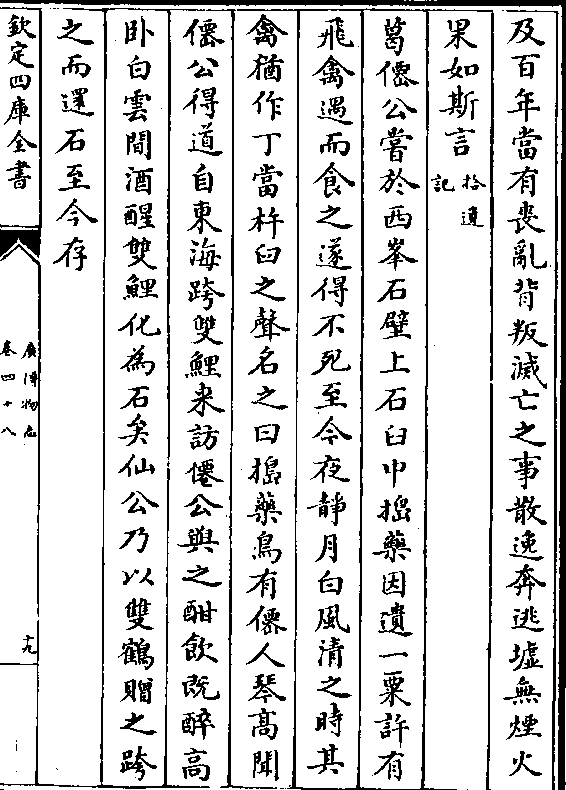 及百年當有喪亂背叛滅亡之事散逸奔逃墟無煙火
果如斯言拾遺
記
葛僊公嘗於西峯石壁上石臼中搗藥因遺一粟許有
飛禽遇而食之遂得不死至今夜靜月白風清之時其
禽猶作丁當杵臼之聲名之曰搗藥鳥有僊人琴高聞
僊公得道自東海跨雙鯉来訪僊公與之酣飲既醉高
卧白雲間酒醒雙鯉化為石矣仙公乃以雙鶴贈之跨
之而還石至今存
欽定四庫全書
廣博物志
卷四十八
十九